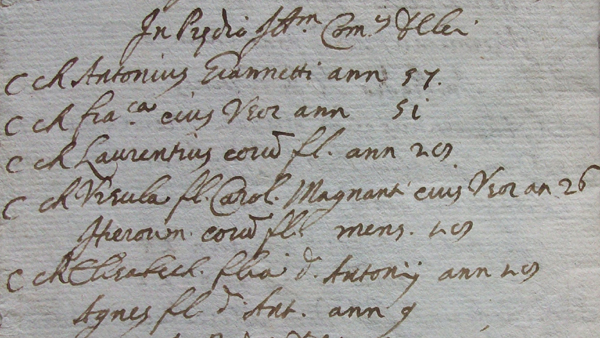 In Predio Ill.m Com.s
C Ch Antonius Giannetti ann 57.
C Ch fra.ca eius Uxor ann 51
C Ch Laurentius eorū fl. ann
C Ch Ursula fl. Carol. Magnani eius Uxor an. 26
Hieron. eorū fl. mens.
C Ch Elisabeth. filia d. Antonij ann
Agnes fl d. Ant. ann 9